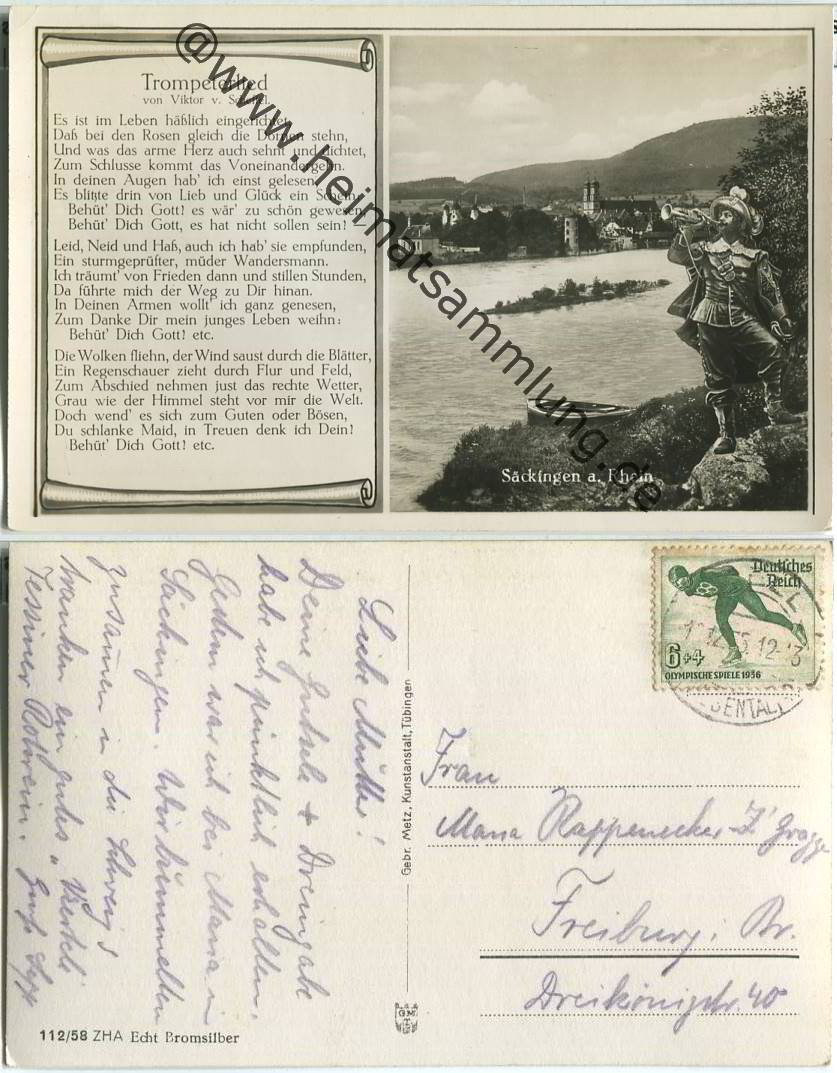 Trompeterlied
von Viktor v. Scheffel.
Es ist im Leben häßlich eingerichtet,
Daß bei den Rosen gleich die Dornen stehn,
Und was das arme Herz auch sehnt und dichtet,
Zum Schlusse kommt das Voneinandergehn.
In deinen Augen hab' ich einst gelesen,
Es blitzte drin von Lieb und Glück ein Schein:
Behüt' Dich Gott! es wär' zu schön gewesen,
Behüt' Dich Gott, es hat nicht sollen sein!
Leid, Neid und Haß, auch ich hab' sie empfunden,
Ein sturmgeprüfter, müder Wandersmann.
Ich träumt' von Frieden dann und stillen Stunden,
Da führte mich der Weg zu Dir hinan.
In Deinen Armen wollt' ich ganz genesen,
Zum Danke Dir mein junges Leben weihn:
Behüt' Dich Gott! etc.
Die Wolken fliehn, der Wind saust durch die Blätter,
Ein Regenschauer zieht durch Flur und Feld,
Zum Abschied nehmen just das rechte Wetter,
Grau wie der Himmel steht vor mir die Welt.
Doch wend' es sich zum Guten oder Bösen,
Du schlanke Maid, in Treuen denk ich Dein!
Behüt' Dich Gott! etc.
Säckingen a. Rhein
@www.heimatsammlung.de
Liebe Mutter!
Deine Gutsele + Dreingabe
habe ich pünktlich erhalten.
Gestern war ich bei Maria in
Säckingen. Wir bummelten
zusamen in die Schweiz &
tranken ein gutes „Viertele"
Tessiner Rotwein. Gruß Sepp
Gebr. Metz, Kunstanstalt, Tübingen
GM
112/58 ZHA Echt Bromsilber
Deutsches
Reich
6+4
OLYMPISCHE SPIELE 1936
Frau
Maria Rappenecker-Z' Gragge
Freiburg i Br.
Dreikönigstr. 40